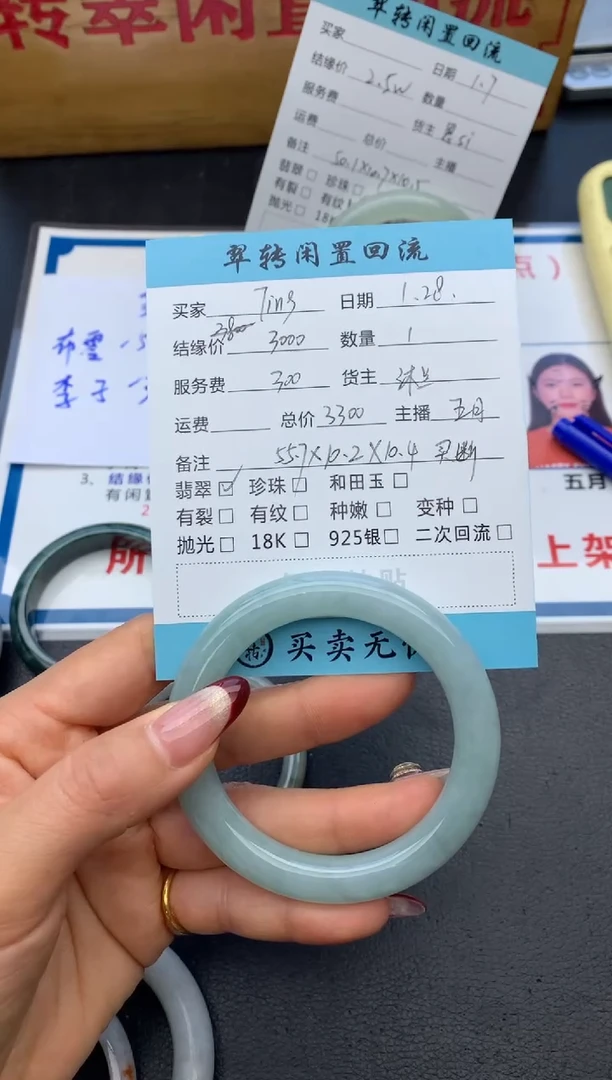 转翠闲置回流
翠转闲置回流
买家
结缘价 2.5w 日期 1.7
服务费 数量
运费 货主
备注 总价 主播
翡翠□ 珍珠□
有裂□ 有纹
抛光□ 18K
翠转闲置回流
买家 Ting 日期 1.28.
2800
结缘价 3000 数量 1
服务费 300 货主
运费 总价 3300 主播 五月
备注 55.7×10.2×10.4
翡翠☑ 珍珠□ 和田玉□
有裂□ 有纹□ 种嫩□ 变种□
抛光□ 18K□ 925银□ 二次回流□
买卖无
点）
李子
3、结缘
有闲置
所
五月
上架